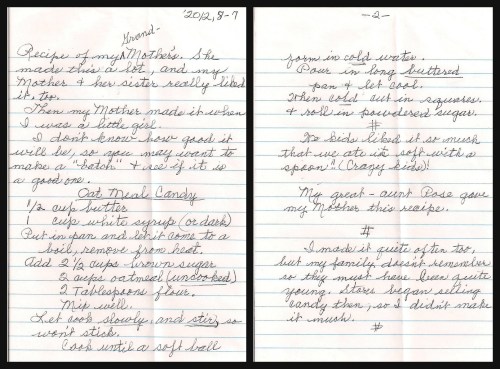 '2012, 8-7
Grand-
Recipe of my ^ Mother's. She
made this a lot, and my
Mother & her sister really liked
it, too.
Then my Mother made it when
I was a little girl.
I don't know how good it
will be, so you may want to
make a "batch" & see if it is
a good one.
Oat Meal Candy
1/2 cup butter
1 cup white syrup (or dark)
Put in pan and let it come to a
boil, remove from heat.
Add 2 1/2 cups brown sugar
2 cups oatmeal (uncooked)
2 Tablespoons flour.
Mix well.
Let cook slowly, and stir, so
won't stick.
Cook until a soft ball
-2-
form in cold water.
Pour in long buttered
pan & let cool.
When cold cut in squares.
& roll in powdered sugar.
#
We kids liked it so much
that we ate it soft with a
spoon" (Crazy kids)!
My great-aunt Rose gave
my Mother this recipe.
#
I made it quite often too,
but my family doesn't remember
so they must have been quite
young. Stores began selling
candy then, so I didn't make
it much.
#